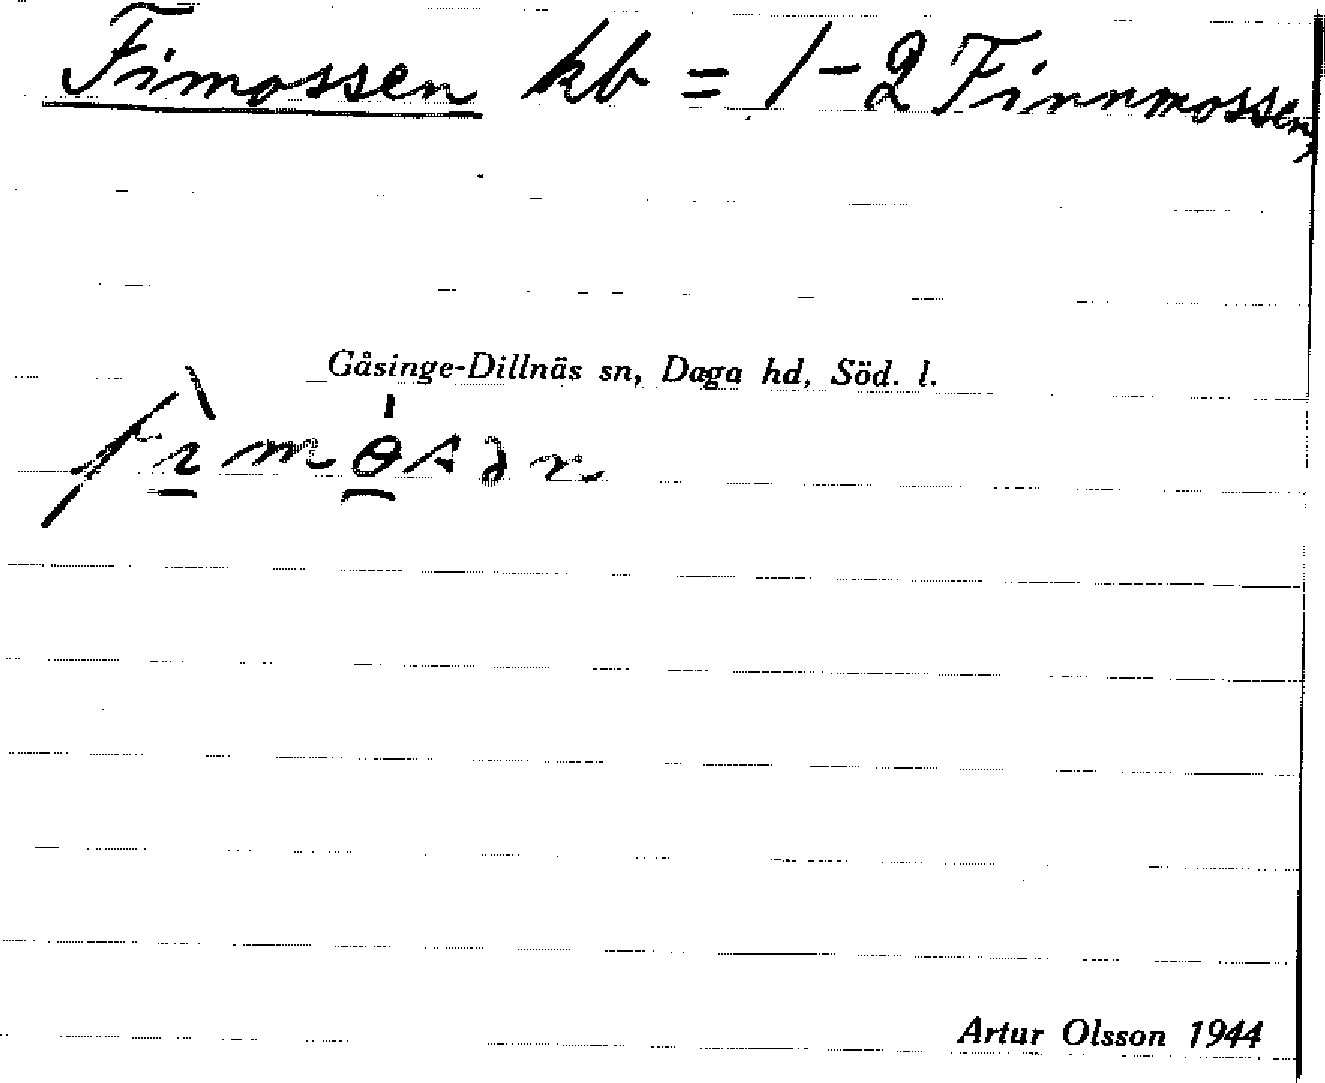 Fimossen kb = 1-2 Finnmossen,
Gåsinge-Dillnäs sn, Daga hd, Söd. l.
fìmɵ́sən
Artur Olsson 1944